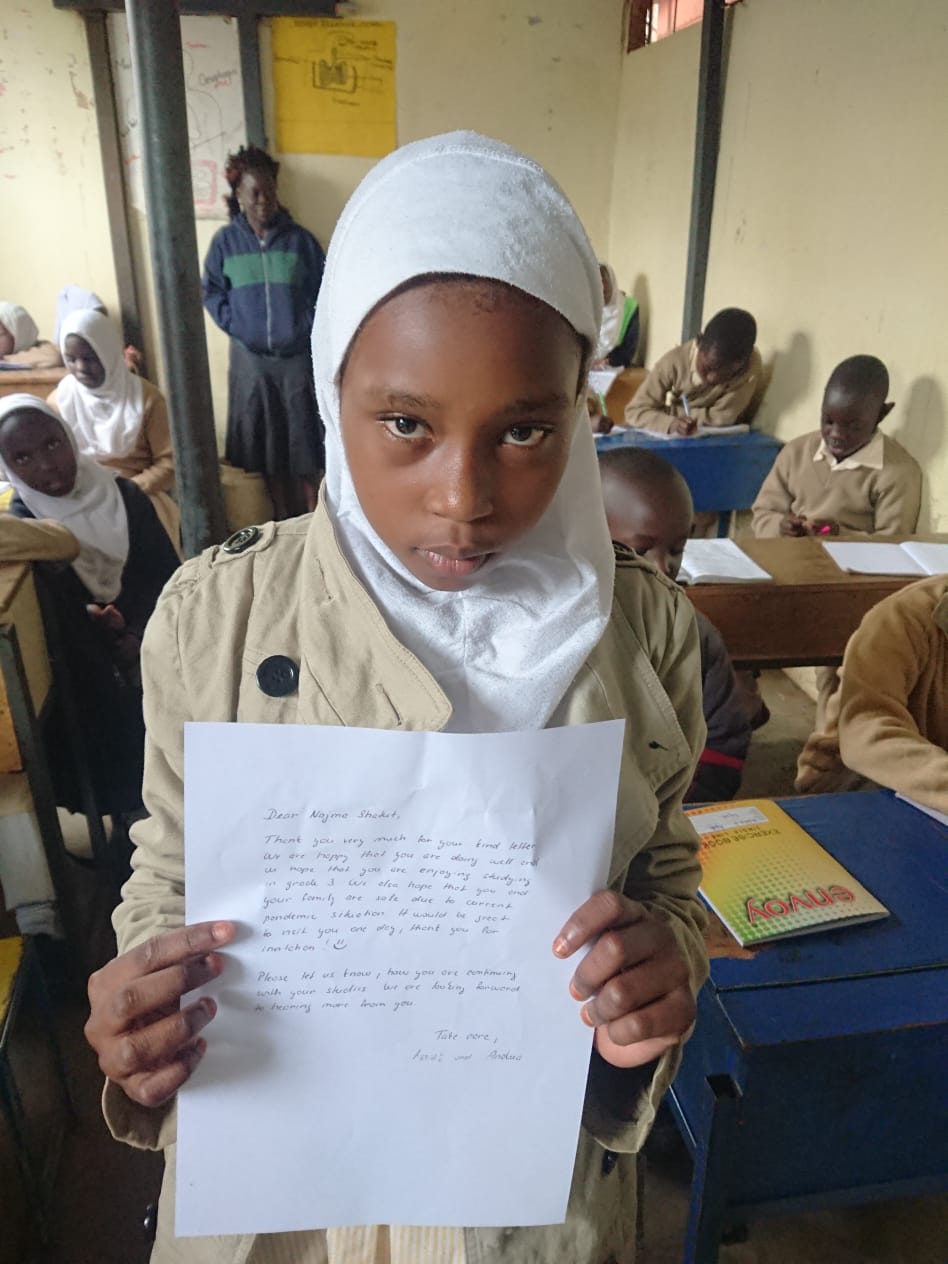 Dear Najma Shakit,
Thank you very much for your kind letter.
We are happy that you are doing well and
we hope that you are enjoying studying
in grade 3. We also hope that you and
your family are safe due to current
pandemic situation. It would be great
to visit you one day, thank you for
invitation! :)
Please let us know, how you are continuing
with your studies. We are looking forward
to hearing more from you.
Take care,
and Andrea
EXERCISE BOOK
envoy